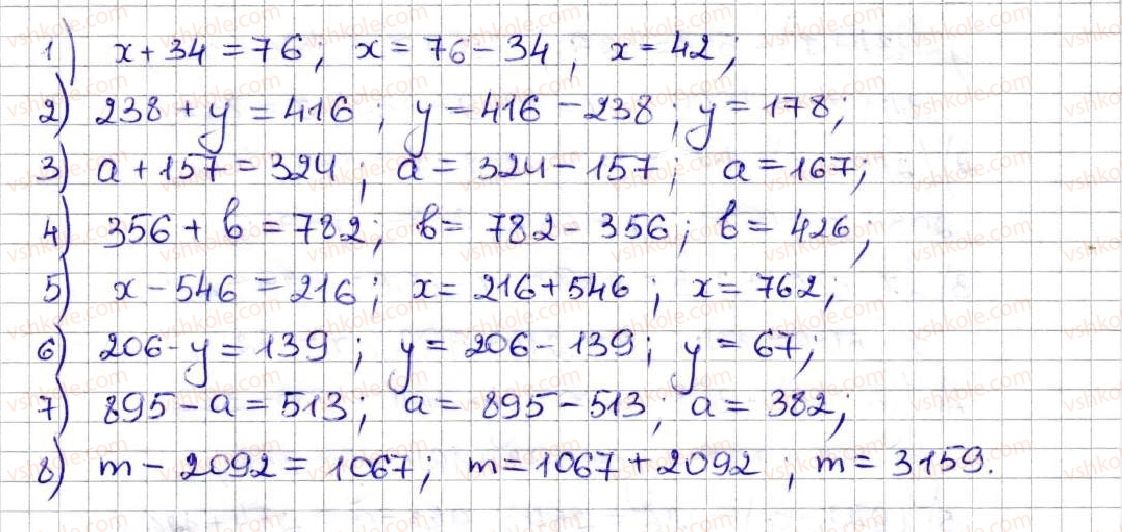 1) x + 34 = 76; x = 76 - 34; x = 42;
2) 238 + y = 416; y = 416 - 238; y = 178;
3) a + 157 = 324; a = 324 - 157; a = 167;
4) 356 + в = 782; в = 782 - 356; в = 426;
5) x - 546 = 216; x = 216 + 546; x = 762;
6) 206 - y = 139; y = 206 - 139; y = 67;
7) 895 - a = 513; a = 895 - 513; a = 382;
8) m - 2092 = 1067; m = 1067 + 2092; m = 3159.